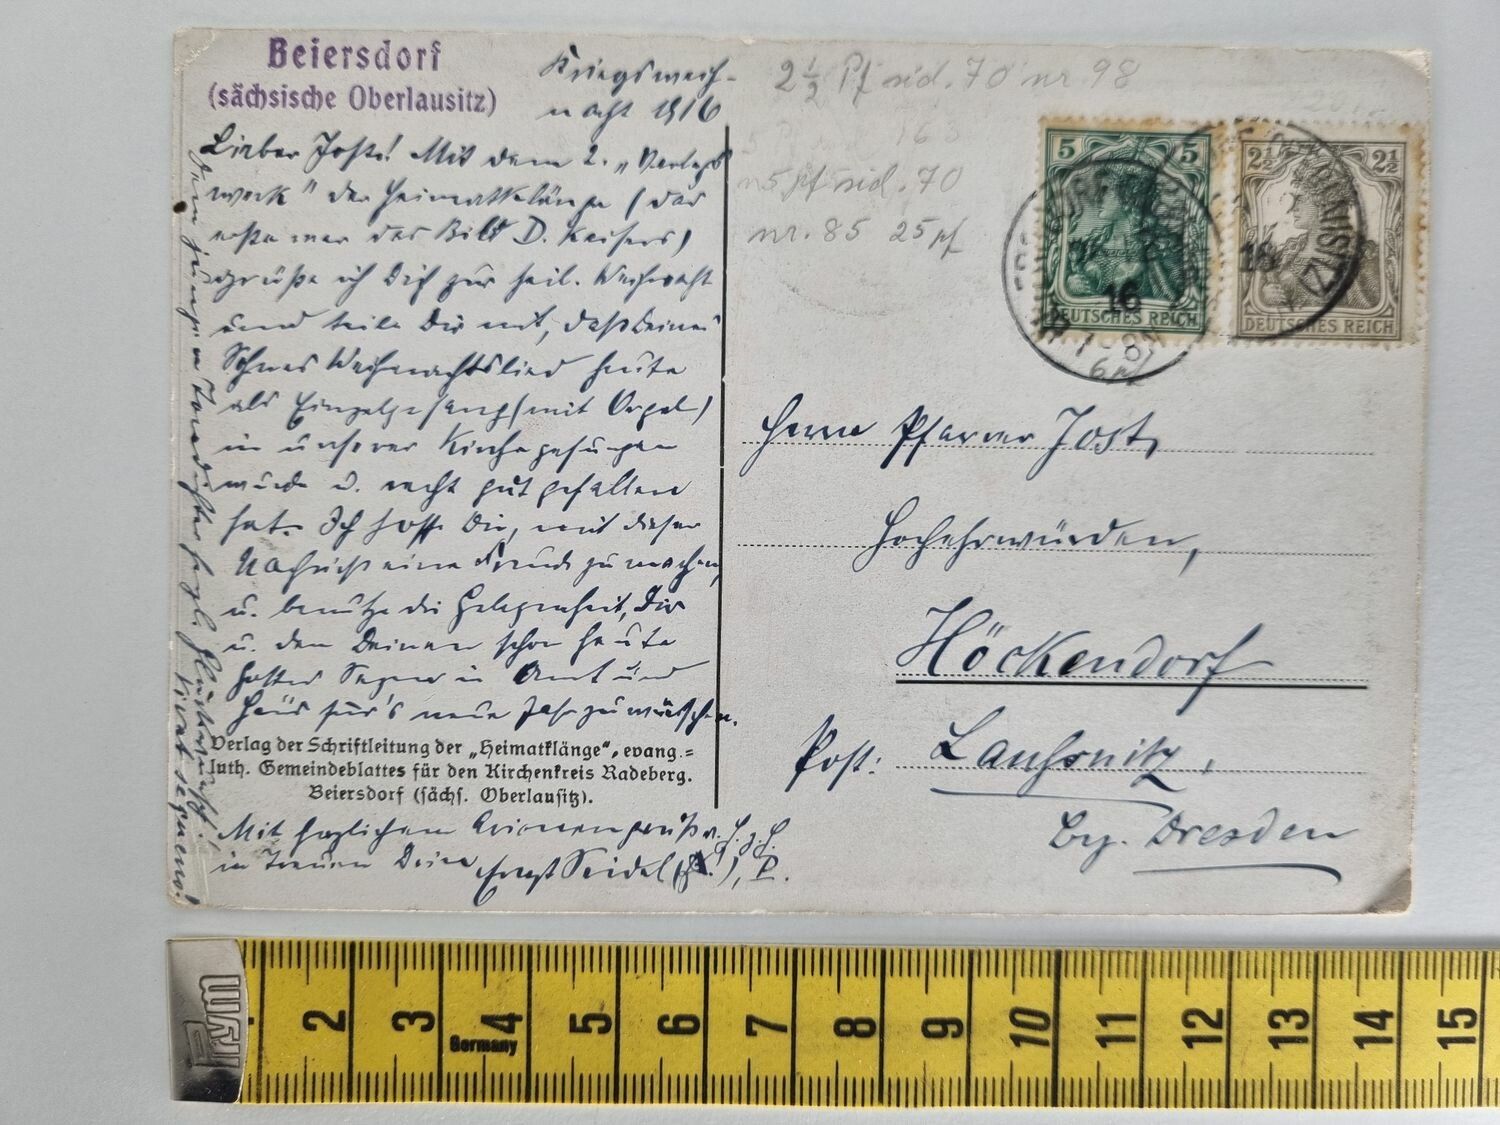 Beiersdorf
(sächsische Oberlausitz)
Kriegsweih-
nacht 1916
Lieber Jost! Mit dem 2. „Verlags
werk" der Heimatklänge (das
erste war das Bild D. Kaisers)
grüße ich Dich zur heil. Weihnacht
und teile Dir mit, daß Deines
Sohnes Weihnachtslied heute
als Einzelgesang (mit Orgel)
in unserer Kirche gesungen
wurde u. recht gut gefallen
hat. Ich hoffe Dir, mit dieser
Nachricht eine Freude zu machen,
u. benutze die Gelegenheit, Dir
u. den Deinen schon heute
Gottes Segen in Amt und
Haus für's neue Jahr zu wünschen.
Verlag der Schriftleitung der „Heimatklänge", evang.=
luth. Gemeindeblattes für den Kirchenkreis Radeberg.
Beiersdorf (sächs. Oberlausitz).
Mit herzlichem
in Treuen Dein Ernst Seidel
Dem jungen Tondichter herzl. Glückwunsch!
Vivat sequens!
2 1/2 Pf mid. 70 nr 98
5 pf mid. 70
nr. 85 25 pf
5 5
DEUTSCHES REICH
2½ 2½
DEUTSCHES REICH
16
16
6 pf
Herrn Pfarrer Jost,
Hochehrwürden,
Höckendorf
Post: Laußnitz,
Bz. Dresden
2 3 4 5 6 7 8 9 10 11 12 13 14 15
Germany